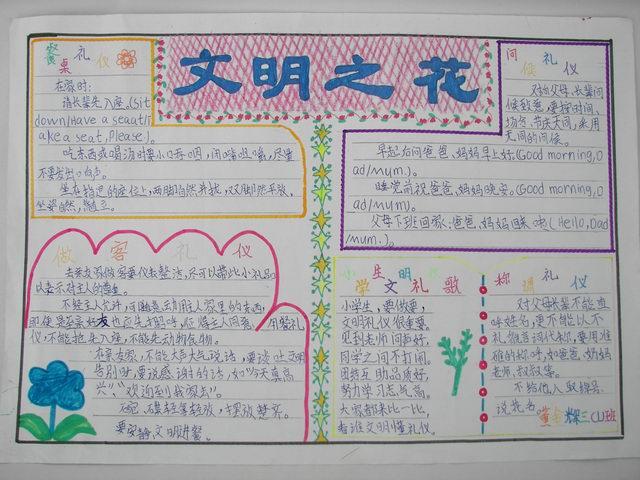 文明之花
餐桌礼仪
在家时:
请长辈先入座。(Sit
down/Have a seat/T
ake a seat, Please)。
吃东西或喝汤时要小口吞咽,闭嘴咀嚼,尽量
不要发出响声。
坐在挡近的座位上,两脚自然并拢,双脚自然平放,
坐姿自然,端正。
问候礼仪
对称父母、长辈问
候致意,要按时间、
场合、节庆不同,采用
不同的问候。
早起后问爸爸、妈妈早上好(Good morning,D
ad/Mum.)。
睡觉前祝爸爸、妈妈晚安。(Good morning, D
ad/mum)。
父母下班回家:爸爸、妈妈回来啦(Hello, Dad
/Mum.)。
做客礼仪
去亲友家做客要仪表整洁,尽可以带些小礼品
以表示对主人的尊重。
不经主人允许,可随意去翻主人家里的东西,
即使是至亲好友也应先打招呼,征得主人同意。用餐礼
仪,不能抢先入座,不能先动食物。
在亲友家,不能大声大气说话,要谈吐文明
告别时,要说感谢的话,如“今天真高
兴”、“欢迎到我家去”。
碗、碟轻拿轻放,摆放整齐
要安静、文明进餐
小学生文明礼仪歌
小学生,要做要,
文明礼仪很重要,
见到老师问声好,
同学之间不打闹。
团结互助品质好
努力学习志气高。
大家都来比一比,
看谁文明懂礼仪。
称谓礼仪
对父母长辈不能直
呼姓名,更不能以不
礼貌言词代称,要用准
确的称呼,如爸爸、奶奶
老师、叔叔等。
不给他人取绰号
说花名。
三(4)班